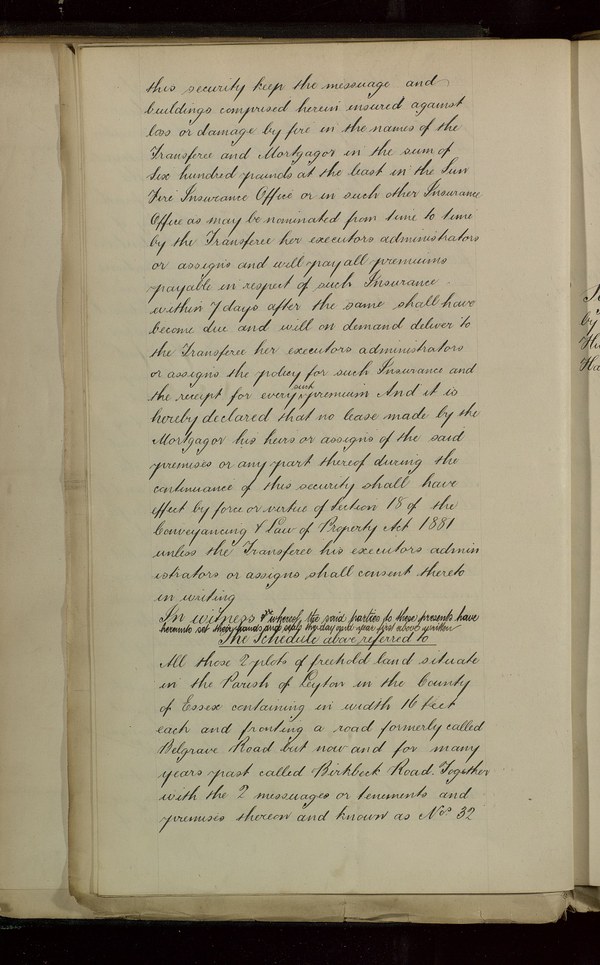 this security keep the messuage and
buildings comprised herein insured against
loss or damage by fire in the names of the
Transferee and Mortgagor in the sum of
Six hundred pounds at the least in the Sun
Fire Insurance Office or in such other Insurance
Office as may be nominated from time to time
by the Transferee her executors administrators
or assigns and will pay all premiums
payable in respect of such Insurance
within 7 days after the same shall have
become due and will on demand deliver to
the Transferee her executors administrators
or assigns the policy for such Insurance and
the receipt for every such premium And it is
hereby declared that no lease made by the
Mortgagor his heirs or assigns of the said
premises or any part thereof during the
continuance of this security shall have
effect by force or virtue of Section 18 of the
Conveyancing & Law of Property Act 1881
unless the Transferee his executors admin
istrators or assigns shall consent thereto
in writing
In witness whereof the said parties to these presents have
hereunto set their hands and seals the day and year first above written
The Schedule above referred to
All those 2 plots of freehold land situate
in the Parish of Leyton in the County
of Essex containing in width 16 feet
each and fronting a road formerly called
Belgrave Road but now and for many
years past called Birkbeck Road. Together
with the 2 messuages or tenements and
premises thereon and known as Nos. 32
by